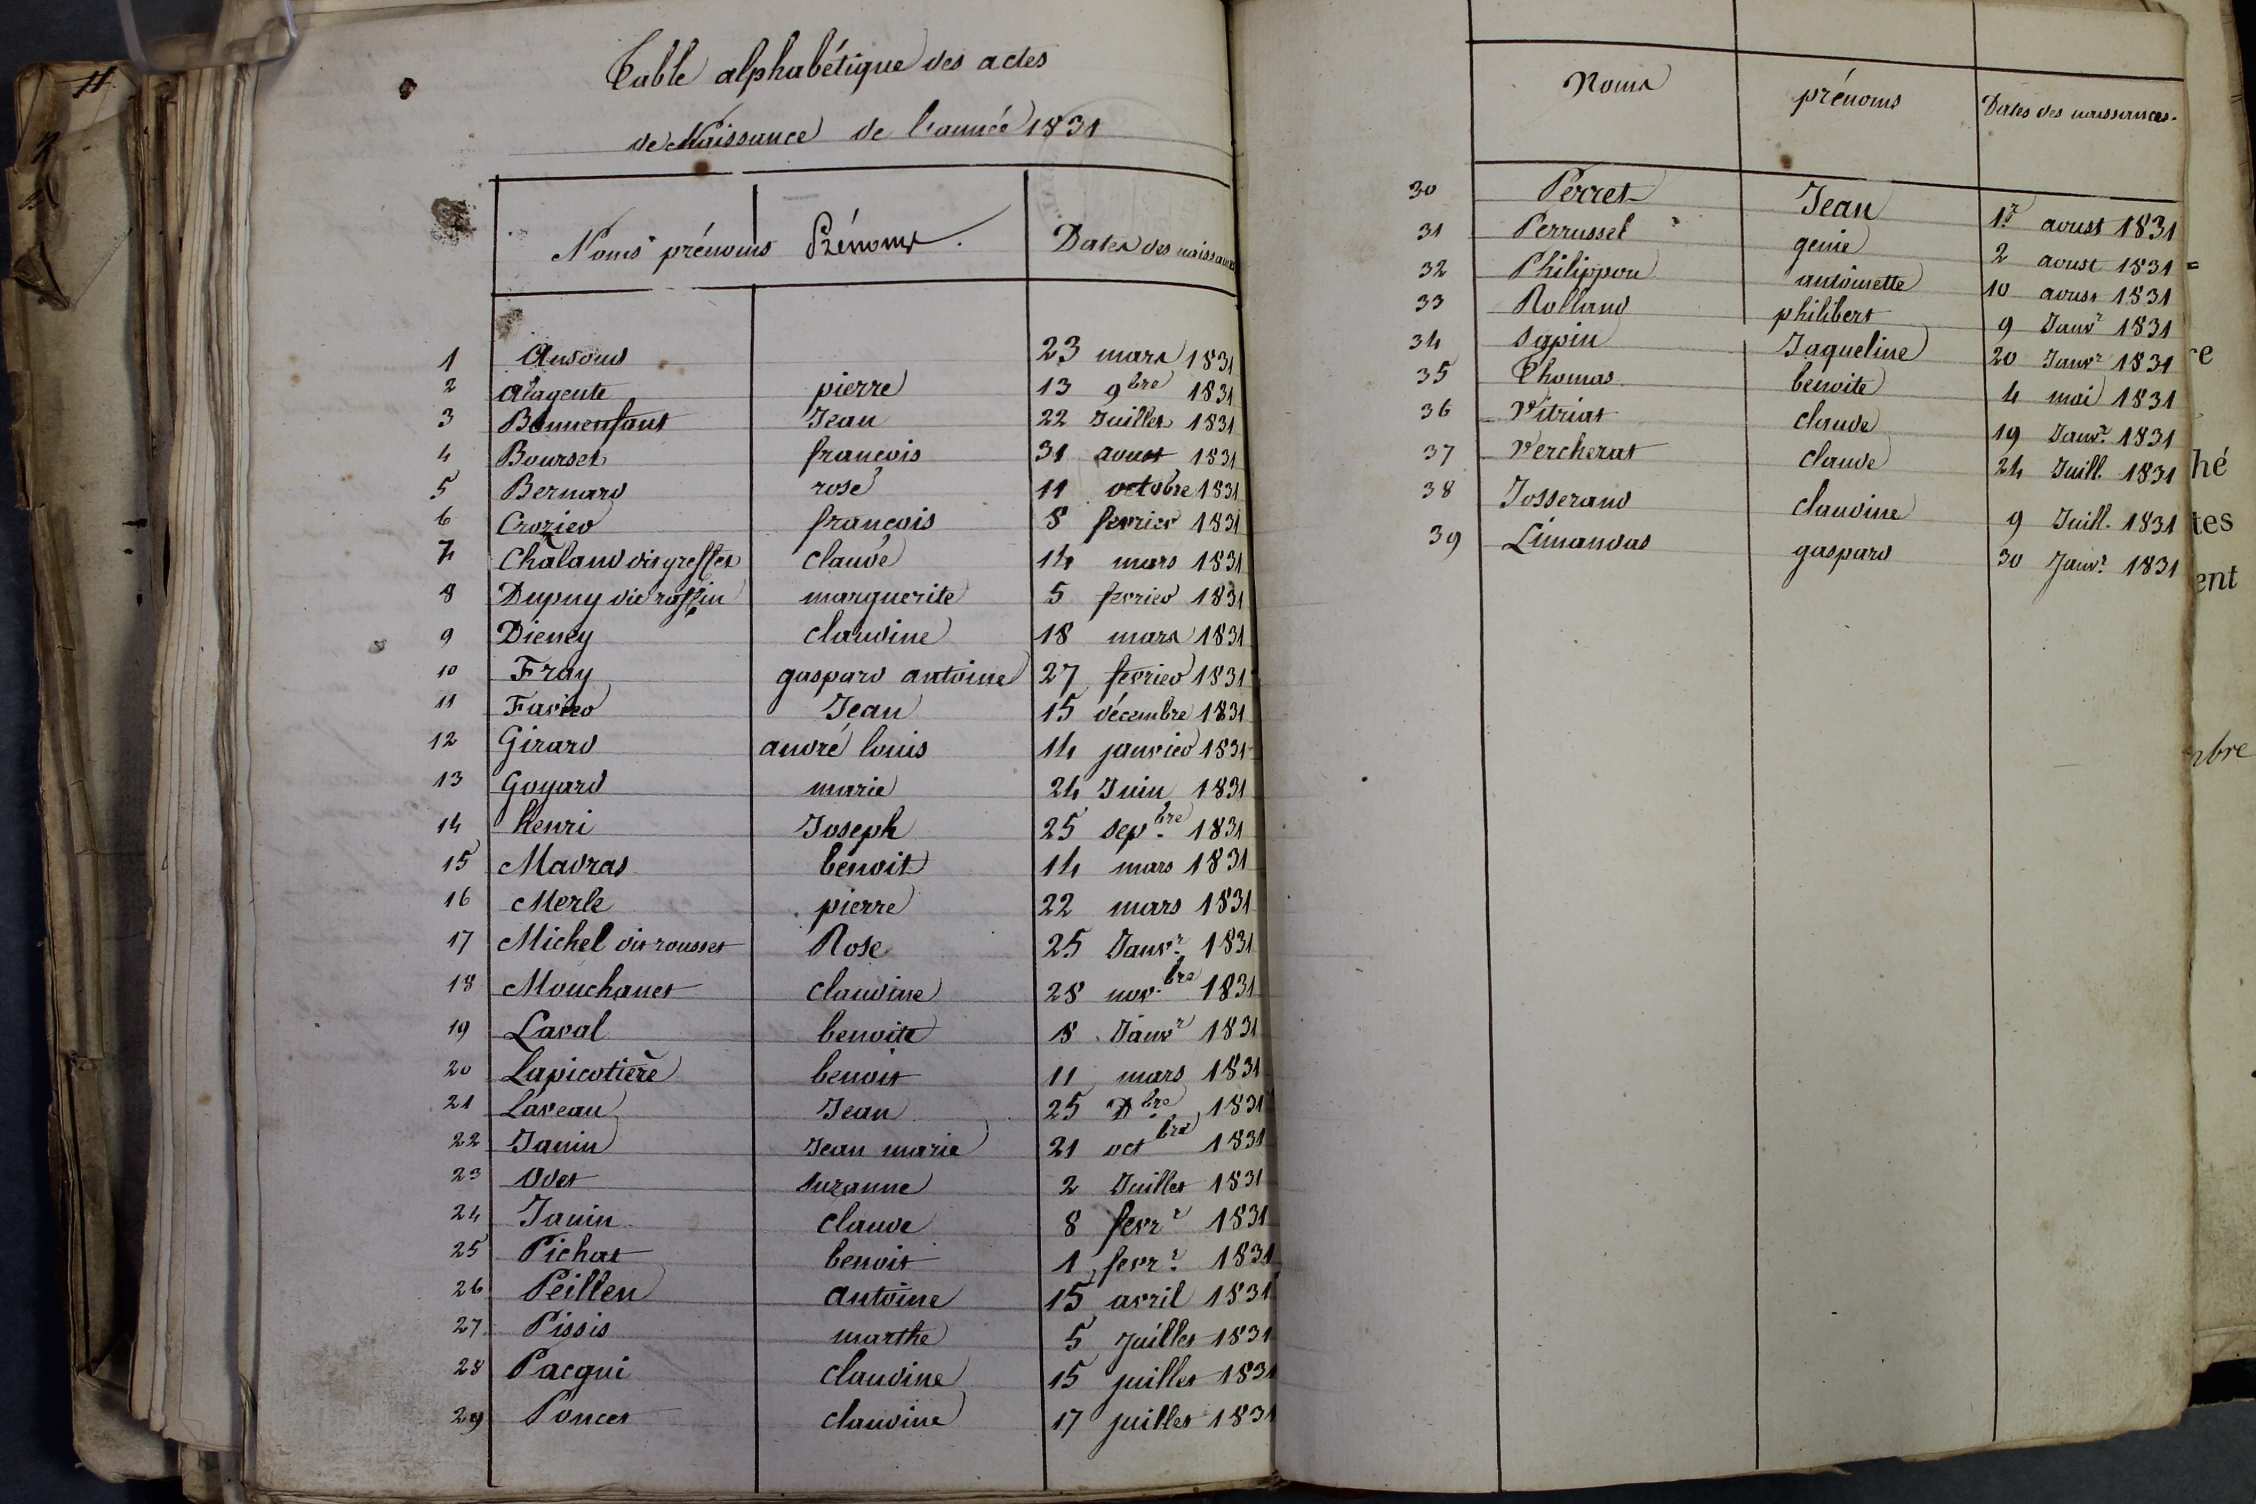 Table alphabétique des actes
de Naissance de l'année 1831
Noms prénoms Prénoms. Dates des naissances
1 23 mars 1831
2 alagente pierre 13 9bre 1831
3 Bonnenfant Jean 22 Juillet 1831
4 Bourset francois 31 aoust 1831
5 Bernard rose 11 octobre 1831
6 Crozier françois 8 fevrier 1831
7 Chaland dit greffet claude 14 mars 1831
8 Dupuy dit raffin marguerite 5 fevrier 1831
9 Dieney claudine 18 mars 1831
10 Fray gaspard antoine 27 fevrier 1831
11 Favier Jean 15 décembre 1831
12 Girard andré louis 14 janvier 1831
13 Goyard marie 24 Juin 1831
14 henri Joseph 25 sepbre 1831
15 Madras benoit 14 mars 1831
16 Merle pierre 22 mars 1831
17 Michel dit rousset Rose 25 Janvr 1831
18 Mouchanet claudine 28 nov.bre 1831
19 Laval benoite 8 Janvr 1831
20 Lapicotière benoit 11 mars 1831
21 Laveau Jean 25 Dbre 1831
22 Janin Jean marie 21 octbre 1831
23 Odet suzanne 2 Juillet 1831
24 Janin claude 8 fevrr 1831
25 Pichat benoit 1 fevr.r 1831
26 Peillen antoine 15 avril 1831
27 Pissis marthe 5 Juillet 1831
28 Pacqui claudine 15 juillet 1831
29 Poncet claudine 17 juillet 1831
Noms prénoms Dates des naissances.
30 Perret Jean 1r aoust 1831
31 Perrussel genie 2 aoust 1831
32 Philippon antoinette 10 aoust 1831
33 Rolland philibert 9 Janvr 1831
34 sapin Jaqueline 20 Janvr 1831
35 Thomas benoite 4 mai 1831
36 Vitriat claude 19 Janvr. 1831
37 Vercherat claude 24 Juill. 1831
38 Josserand claudine 9 Juill. 1831
39 Limandas gaspard 30 Janvr. 1831
hé
tes
ent
bre